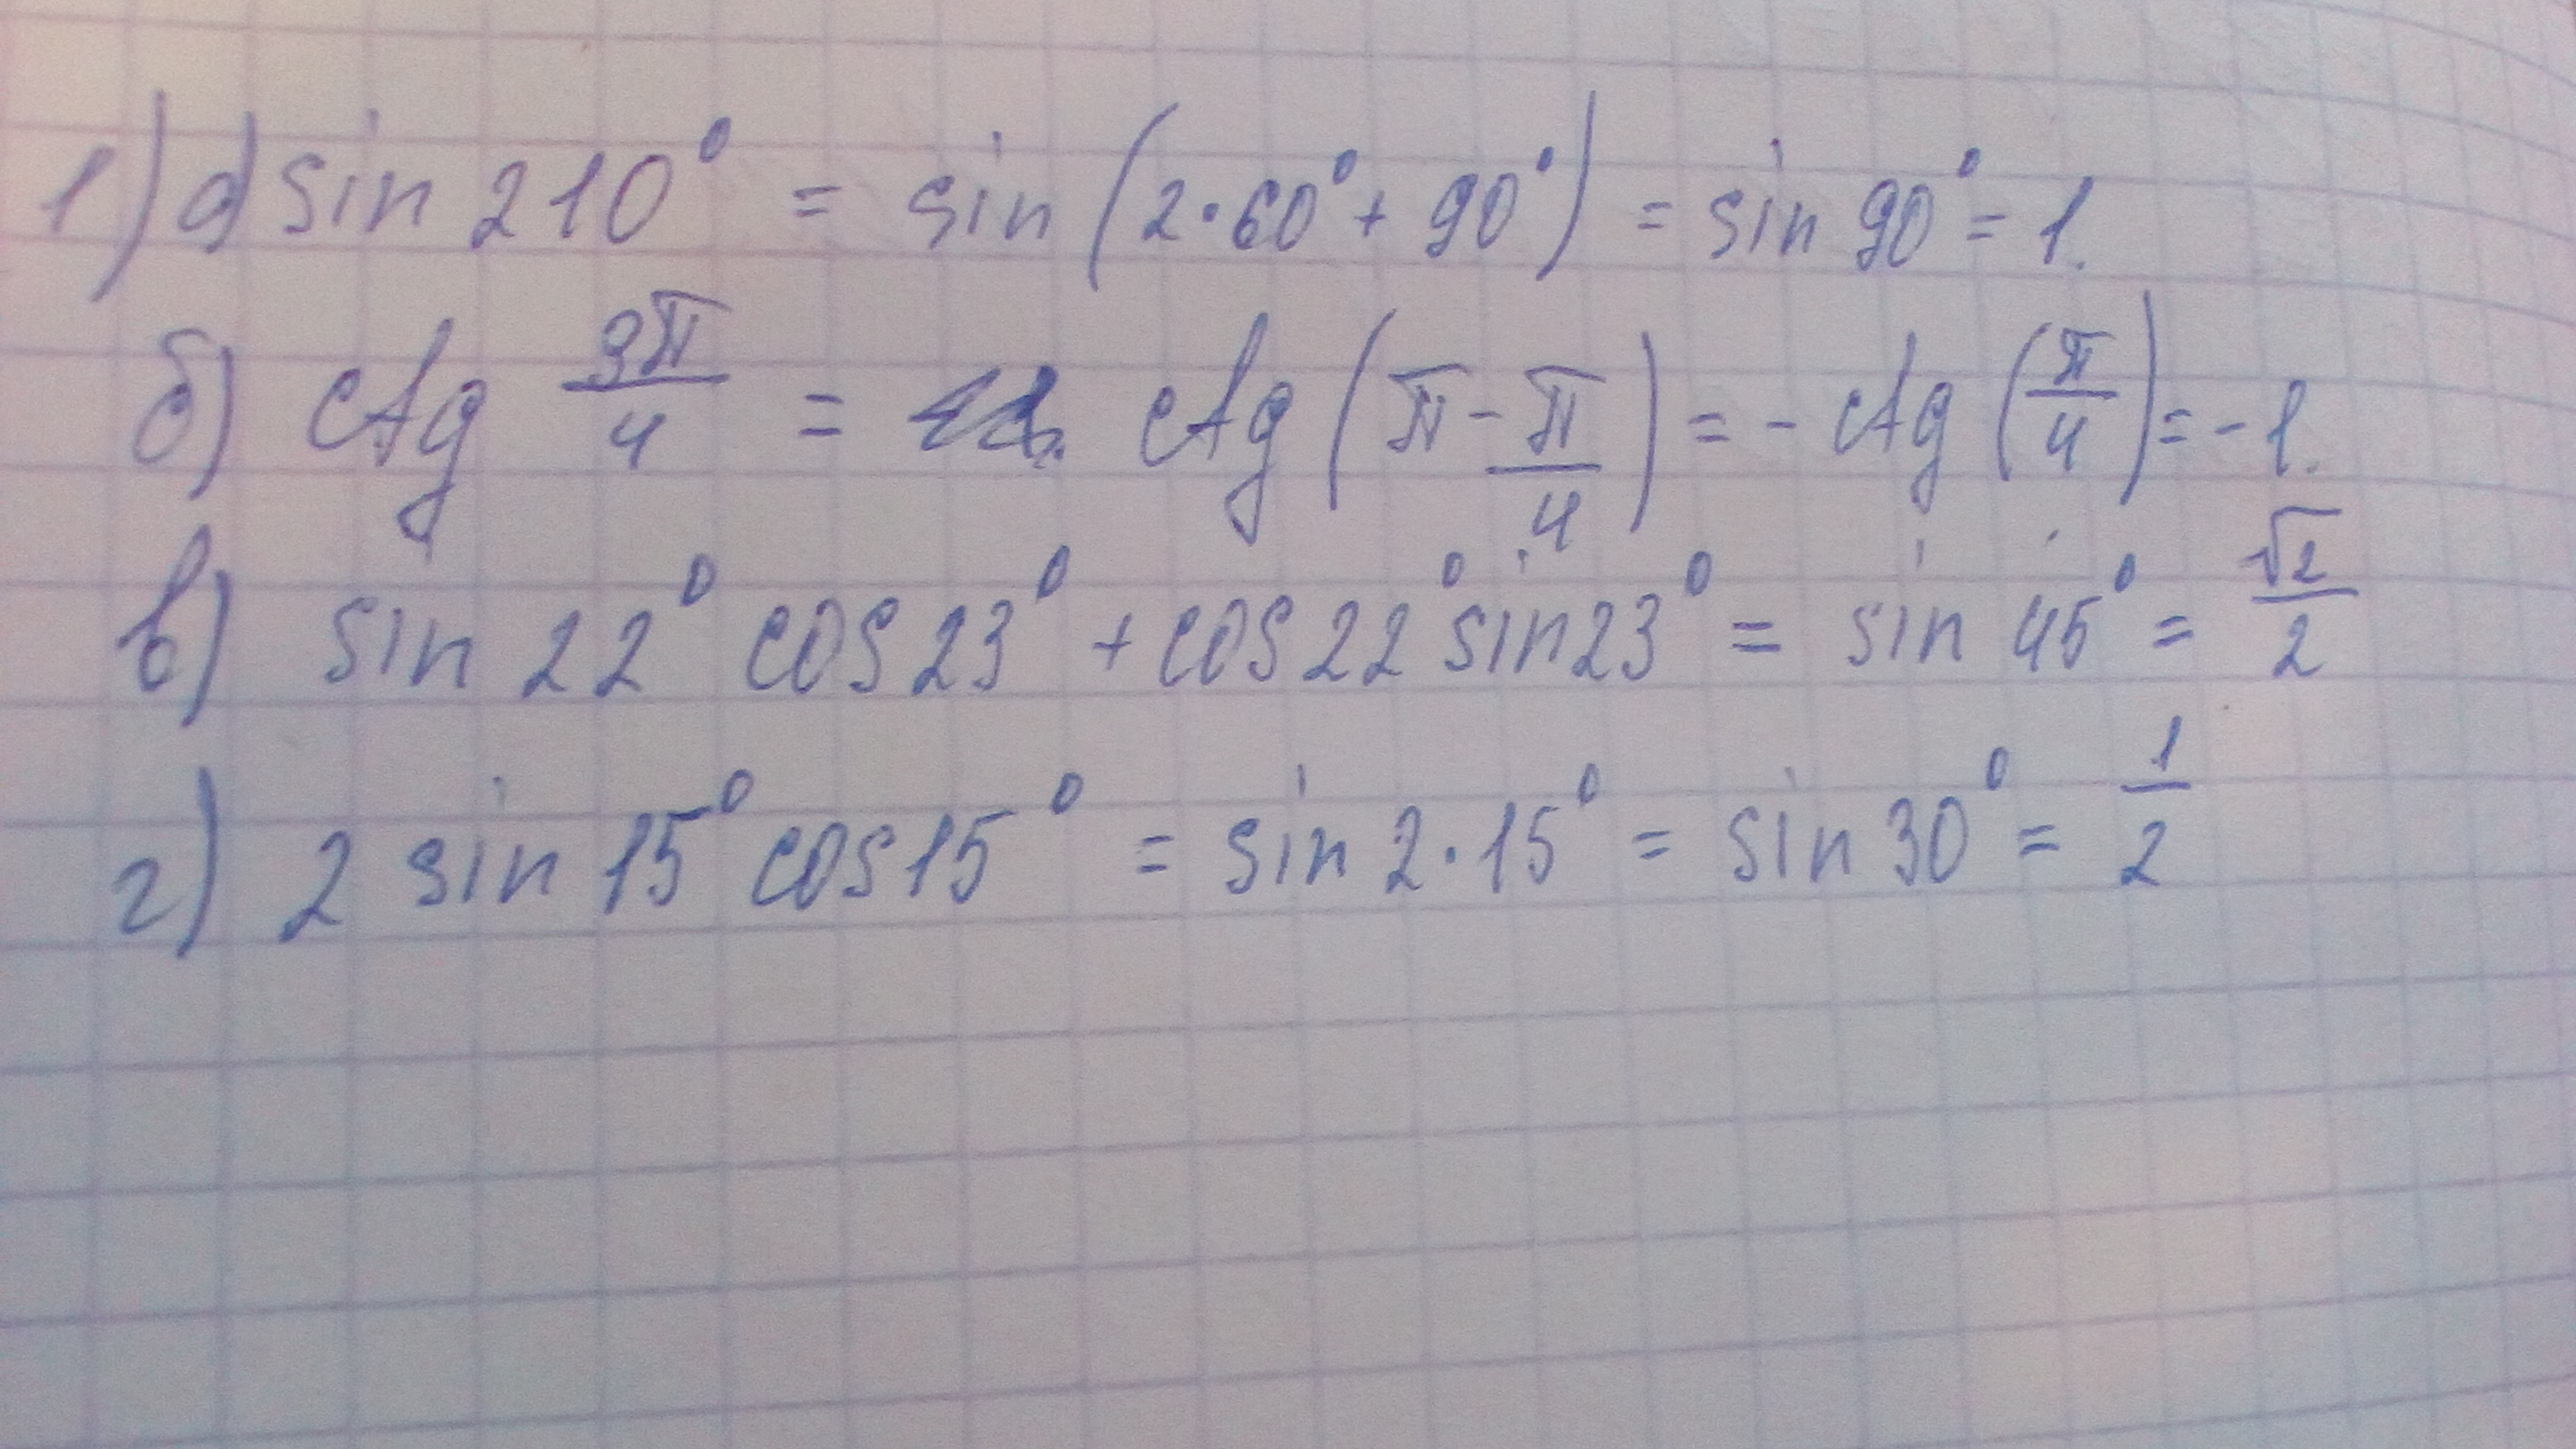 1) а) sin 210° = sin (2·60° + 90°) = sin 90° = 1.
б) ctg 3π/4 = ctg (π - π/4) = - ctg (π/4) = -1.
в) sin 22° cos 23° + cos 22° sin 23° = sin 45° = √2/2
г) 2 sin 15° cos 15° = sin 2·15° = sin 30° = 1/2